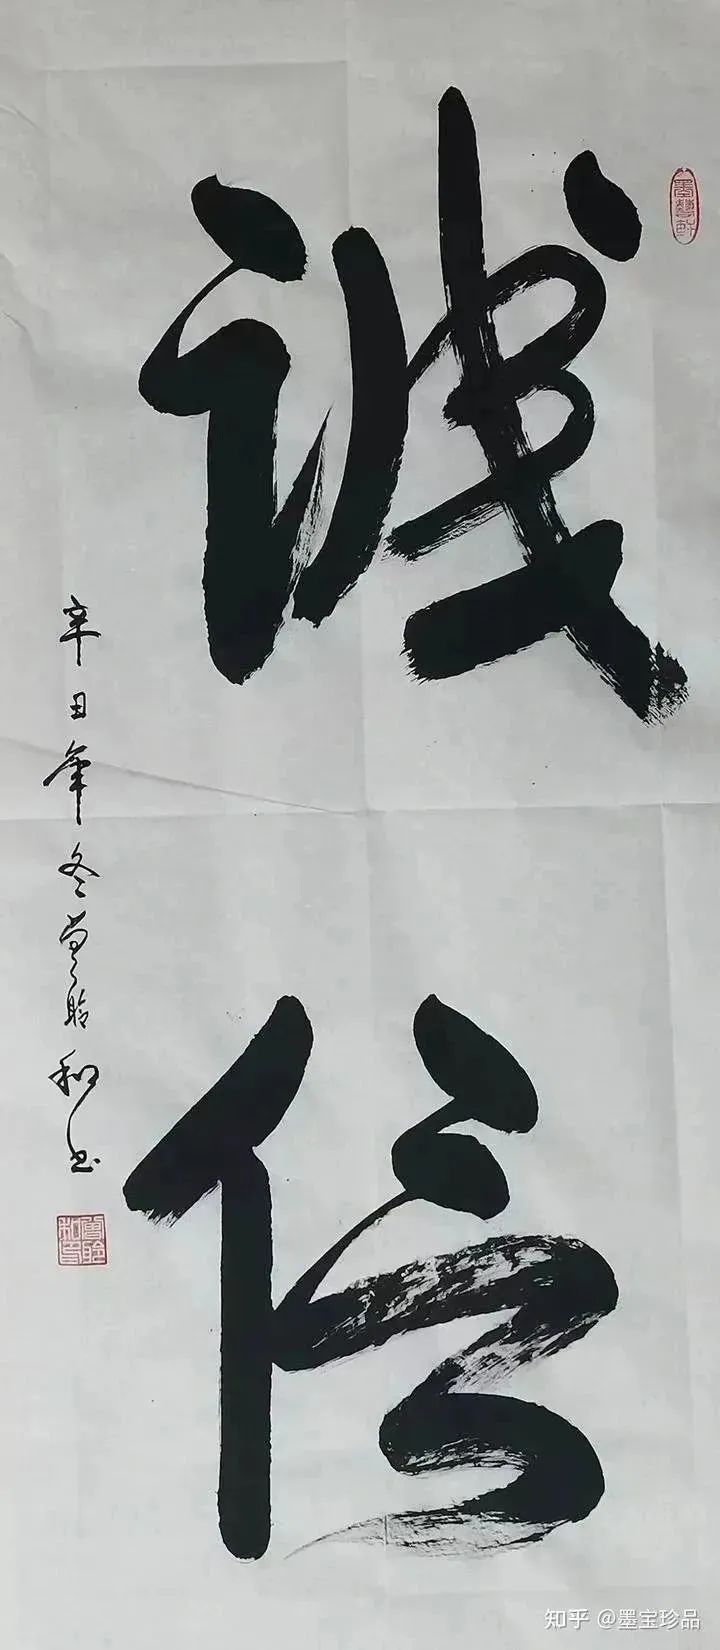 诚信
辛丑年冬曾和书
墨藝軒
知乎 @墨宝珍品